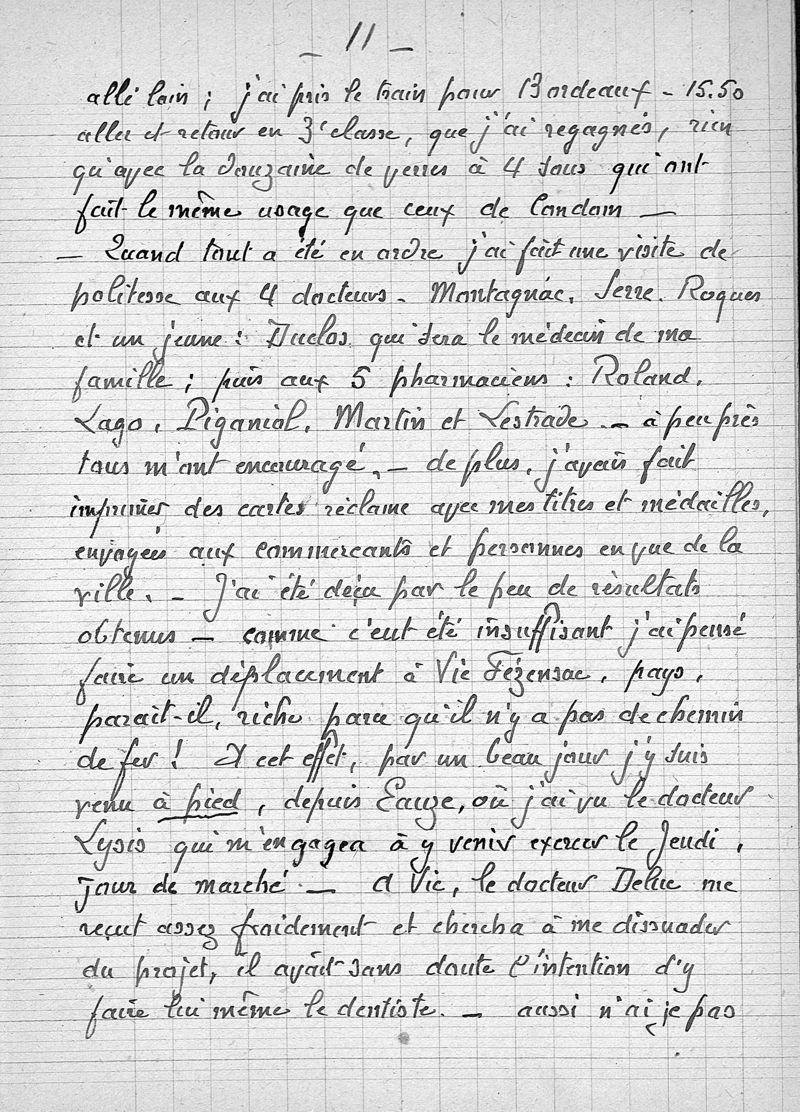 _ 11 _
allé loin ; j'ai pris le train pour Bordeaux - 15.50
aller et retour en 3e classe, que j'ai regagnés, rien
qu'avec la douzaine de verres à 4 sous qui ont
fait le même usage que ceux de Condom —
— Quand tout a été en ordre j'ai fait une visite de
politesse aux 4 docteurs - Montagnac, Serre, Roques
et un jeune : Duclos qui sera le médecin de ma
famille ; puis aux 5 pharmaciens : Roland,
Lago, Piganiol, Martin et Lestrade. - à peu près
tous m'ont encouragé. - de plus, j'avais fait
imprimer des cartes réclame avec mes titres et médailles,
envoyées aux commercants et personnes en vue de la
ville. - J'ai été déçu par le peu de résultats
obtenus - comme c'eut été insuffisant j'ai pensé
faire un déplacement à Vic Fézensac, pays,
parait-il, riche parce qu'il n'y a pas de chemin
de fer ! A cet effet, par un beau jour j'y suis
venu à pied, depuis Eauze, où j'ai vu le docteur
Lysis qui m'engagea à y venir exercer le Jeudi,
jour de marché. — A Vic, le docteur Deluc me
reçut assez froidement et chercha à me dissuader
du projet, il avait sans doute l'intention d'y
faire lui même le dentiste. - aussi n'ai je pas